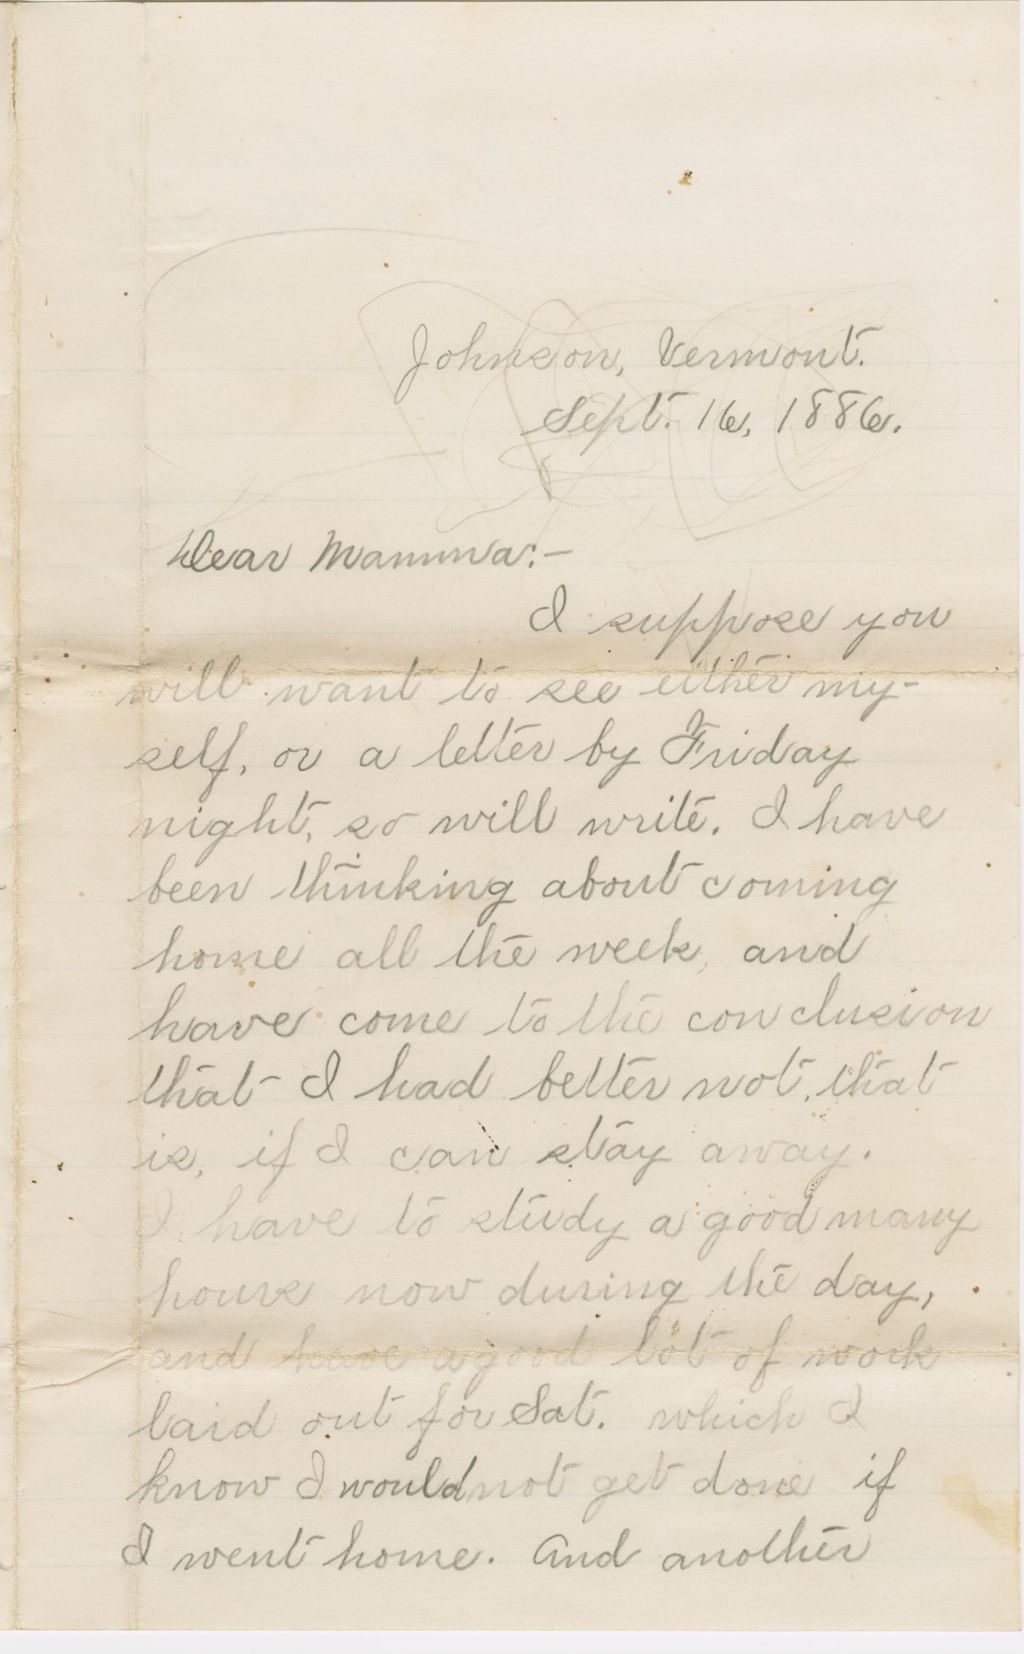 Johnson, Vermont.
Sept. 16, 1886.
Dear Mamma:-
I suppose you
will want to see either my-
self, or a letter by Friday
night, so will write. I have
been thinking about coming
home all the week, and
have come to the conclusion
that I had better not, that
is, if I can stay away.
I have to study a good many
hours now during the day,
and have a good lot of work
laid out for Sat. which I
know I would not get done if
I went home. And another